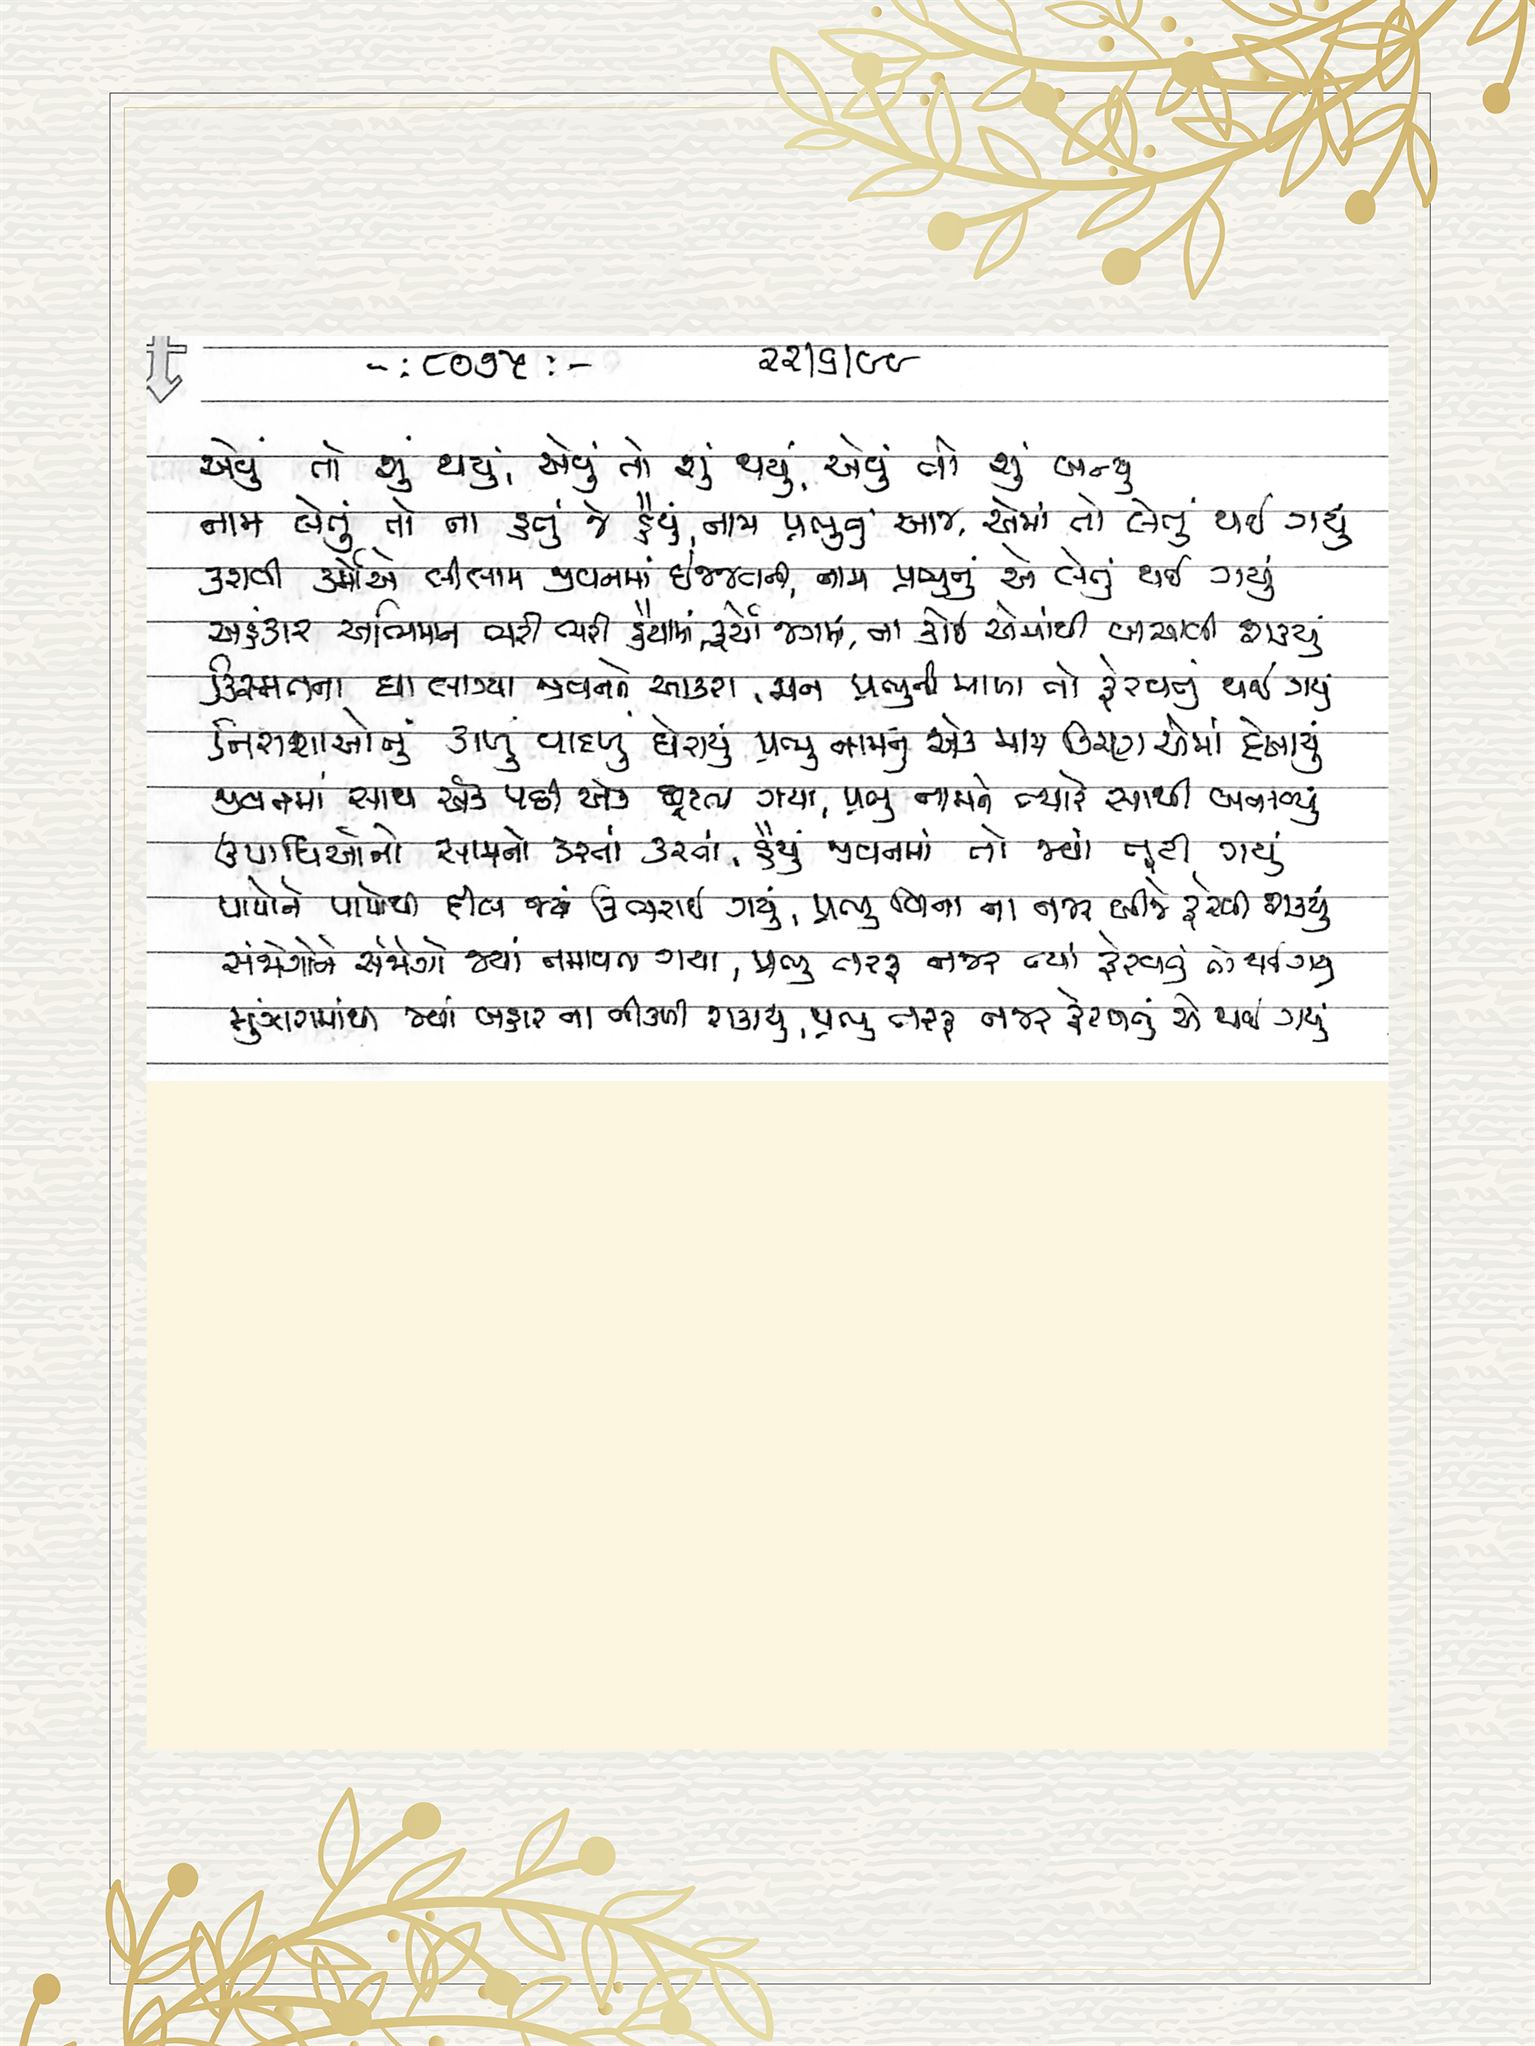 -: ૮૦૭૫ :- ૨૨/૬/૯૯
એવું તો શું થયું, એવું તો શું થયું, એવું તો શું બન્યુ
નામ લેતું તો ના હતું જે હૈયું, નામ પ્રભુનું આજ, એમાં તો લેતું થઈ ગયું
કરાવી કર્મોએ લીલામ જીવનમાં ઇજ્જતની, નામ પ્રભુનું એ લેતું થઈ ગયું
અહંકાર અભિમાન ભરી ભરી હૈયામાં, ફર્યો જગમાં, ના કોઈ એમાંથી બચાવી શક્યું
કિસ્મતના ઘા લાગ્યા જીવનને આકરા, મન પ્રભુની માળા તો ફેરવતું થઈ ગયું
નિરાશાઓનું કાળું વાદળું ઘેરાયું પ્રભુ નામનું એક માત્ર કિરણ એમાં દેખાયું
જીવનમાં સાથ એક પછી એક છૂટતા ગયા, પ્રભુ નામને ત્યારે સાથી બનાવ્યું
ઉપાધિઓનો સામનો કરતાં કરતાં, હૈયું જીવનમાં તો જ્યાં તૂટી ગયું
પાપોને પાપોથી દીલ જ્યાં ઉભરાઈ ગયું, પ્રભુ વિના ના નજર બીજે ફેરવી શક્યું
સંજોગોને સંજોગો જ્યાં નમાવતા ગયા, પ્રભુ તરફ નજર ત્યાં ફેરવતું તો થઈ ગયુ
મુંઝારામાંથી જ્યાં બહાર ના નીકળી શકાયુ, પ્રભુ તરફ નજર ફેરવતું એ થઈ ગયું